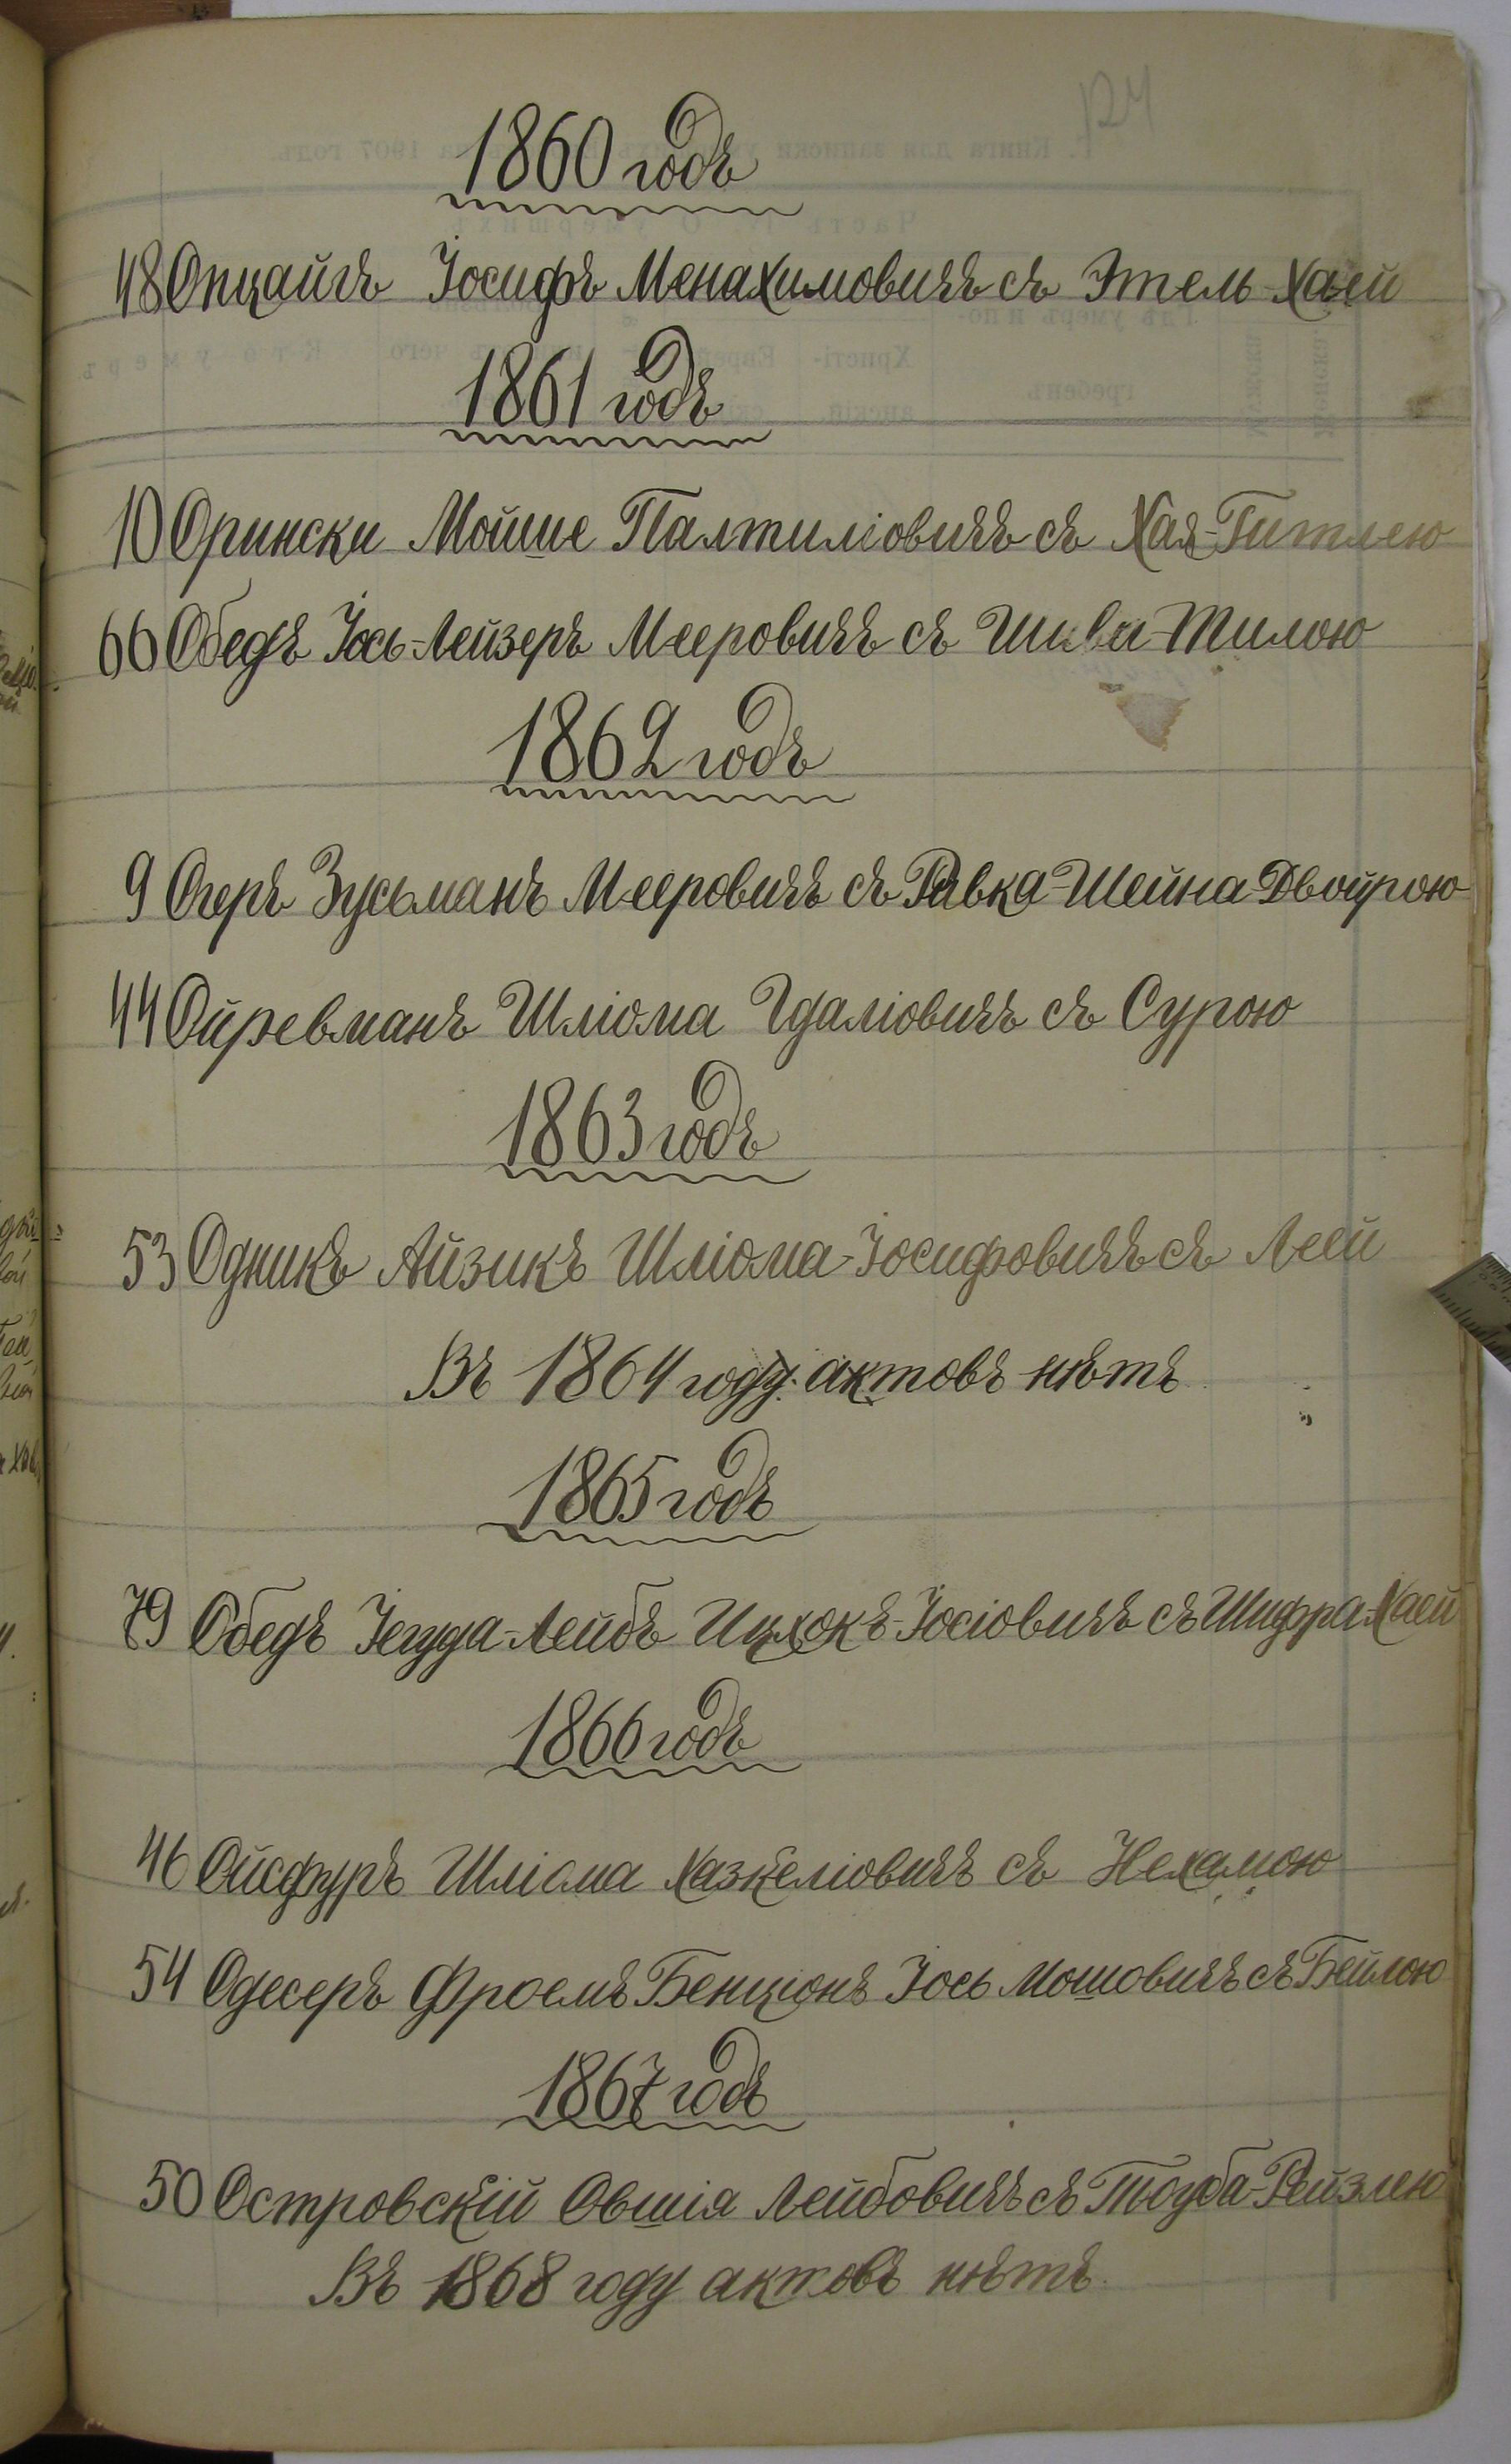 124
1860 годъ
48 Опцайгъ Іосифъ Менахимовичъ съ Этель-Хаей
1861 годъ
10 Орински Мойше Палтиліовичъ съ Хая-Гитлею
66 Обедъ Іось-Лейзеръ Мееровичъ съ Шива-Тилою
1862 годъ
9 Огеръ Зусьманъ Мееровичъ съ Ривка-Шейна-Двойрою
44 Ойревманъ Шліома Гдаліовичъ съ Сурою
1863 годъ
53 Одникъ Айзикъ Шліома-Іосифовичъ съ Леей
Въ 1864 году актовъ нѣтъ
1865 годъ
79 Обедъ Іегуда-Лейбъ Ицхокъ-Іосіовичъ съ Шифра Хаей
1866 годъ
46 Ойсфуръ Шліома Хазкеліовичъ съ Нехамою
54 Одесеръ Фроемъ Бенціонъ Іось Мошовичъ съ Бейлою
1867 годъ
50 Островскій Овшія Лейбовичъ съ Тоуба-Рейзлею
Въ 1868 году актовъ нѣтъ